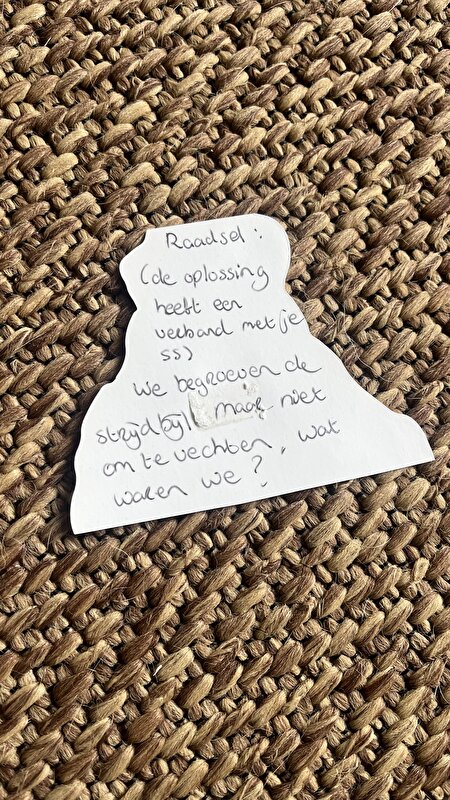 Raadsel :
(de oplossing
heeft een
verband met (je
ss)
We begroeven de
strijdbijl maar niet
om te vechten, wat
waren we ?